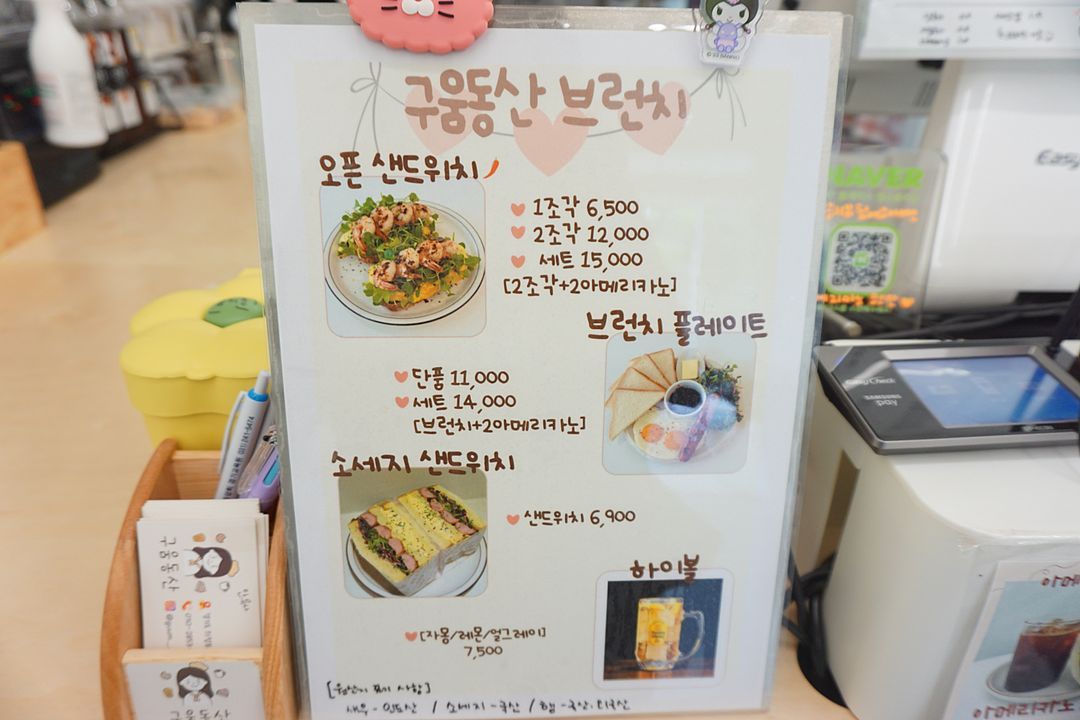 구움동산 브런치
오픈 샌드위치
1조각 6,500
2조각 12,000
세트 15,000
[2조각+2아메리카노]
브런치 플레이트
단품 11,000
세트 14,000
[브런치+2아메리카노]
소세지 샌드위치
샌드위치 6,900
하이볼
[자몽/레몬/얼그레이]
7,500
[원산지 표기 사항]
새우-인도산 / 소세지-국산 / 햄-국산.외국산
NAVER
Easy
Easy Check
SAMSUNG
pay
구움동산
구움동산